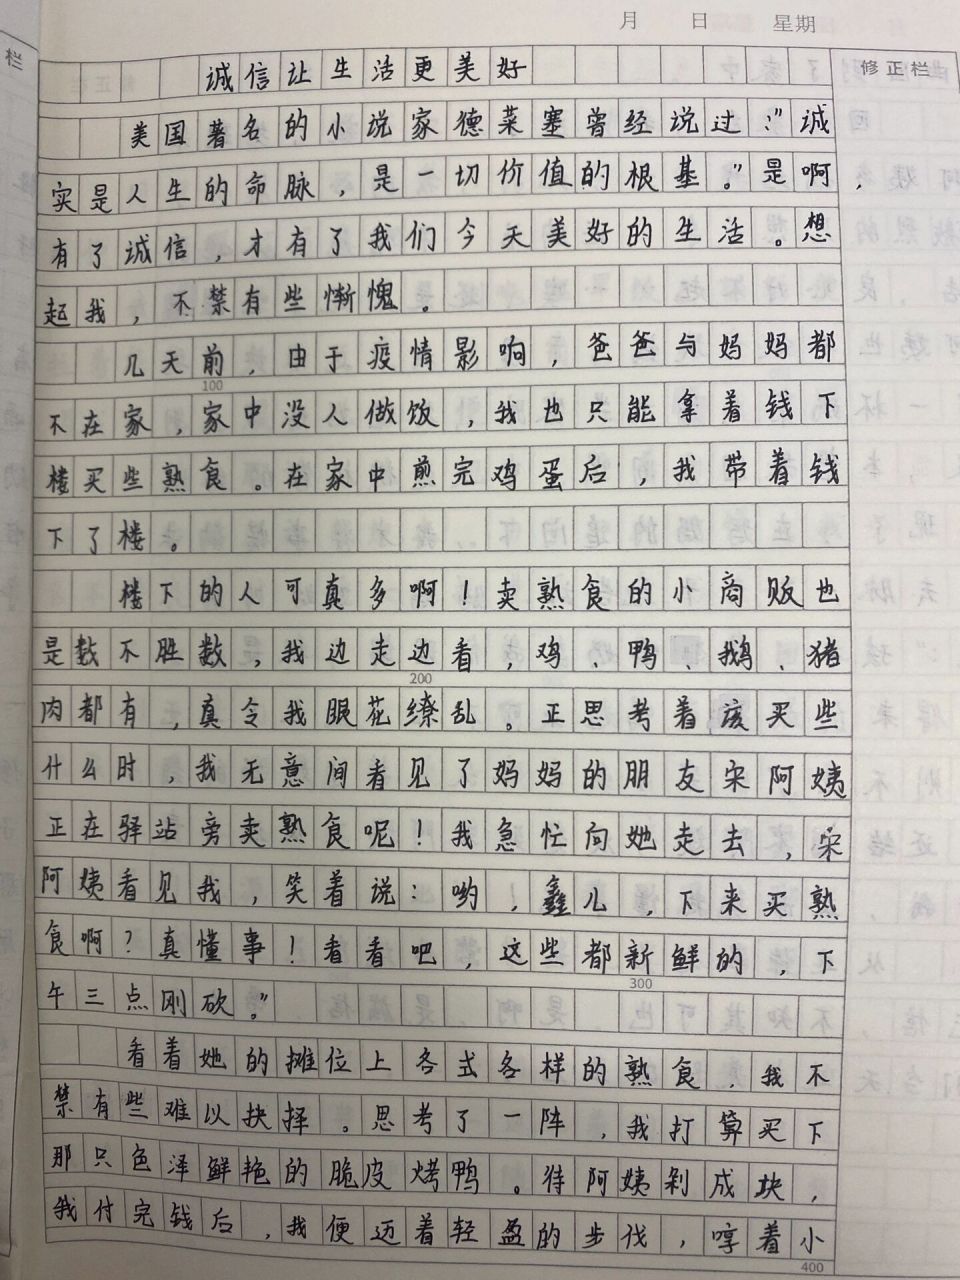 月 日 星期
栏
修正栏
诚信让生活更美好
美国著名的小说家德莱塞曾经说过:"诚
实是人生的命脉，是一切价值的根基。"是啊，
有了诚信，才有了我们今天美好的生活。想
起我，不禁有些惭愧。
几天前，由于疫情影响，爸爸与妈妈都
100
不在家，家中没人做饭，我也只能拿着钱下
楼买些熟食。在家中煎完鸡蛋后，我带着钱
下了楼。
楼下的人可真多啊！卖熟食的小商贩也
是数不胜数，我边走边看，鸡、鸭、鹅、猪
200
肉都有，真令我眼花缭乱。正思考着该买些
什么时，我无意间看见了妈妈的朋友宋阿姨
正在驿站旁卖熟食呢！我急忙向她走去，宋
阿姨看见我，笑着说：哟，鑫儿，下来买熟
食啊？真懂事！看看吧，这些都新鲜的，下
300
午三点刚砍。"
看着她的摊位上各式各样的熟食，我不
禁有些难以抉择。思考了一阵，我打算买下
那只色泽鲜艳的脆皮烤鸭。待阿姨剁成块，
我付完钱后，我便迈着轻盈的步伐，哼着小
400